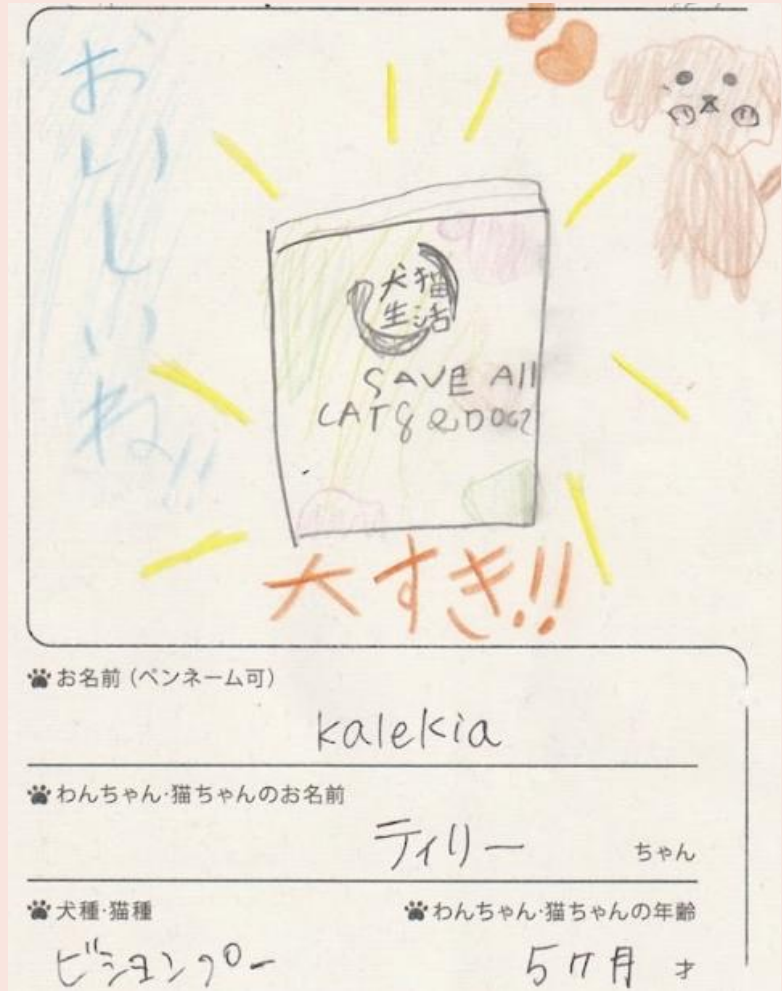 おいしいね!!
犬猫
生活
SAVE All
CATS & DOGS
大すき!!
お名前 (ペンネーム可)
kalekia
わんちゃん・猫ちゃんのお名前
ティリー ちゃん
犬種・猫種 わんちゃん・猫ちゃんの年齢
ビションプー 5ヶ月 才